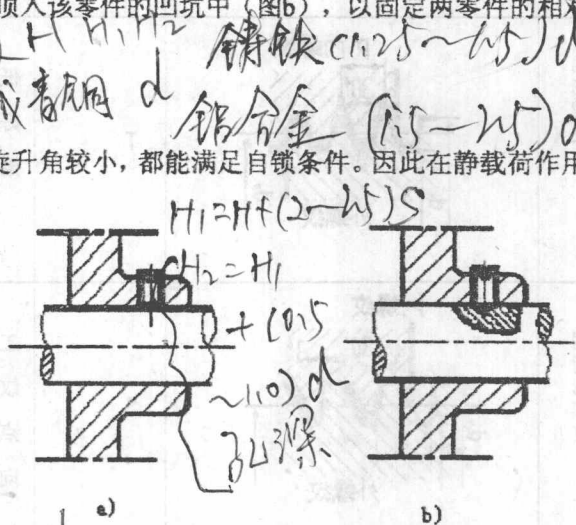 顶入该零件的凹坑中（图b），以固定两零件的相对
H H₁ H₂ 铸铁 (1.25~1.5) d
或青铜 d
铝合金 (1.5~2.5) d
旋升角较小，都能满足自锁条件。因此在静载荷作用
H₁=H+(2~2.5)S
H₂=H₁
+(0.5
~1.0) d
孔深
a)
b)